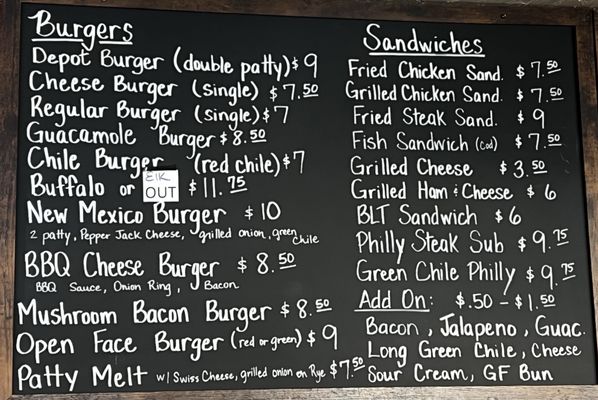 Burgers
Depot Burger (double patty) $9
Cheese Burger (single) $7.50
Regular Burger (single) $7
Guacamole Burger $8.50
Chile Burger (red chile) $7
Buffalo or Elk OUT $11.75
New Mexico Burger $10
2 patty, Pepper Jack Cheese, grilled onion, green chile
BBQ Cheese Burger $8.50
BBQ Sauce, Onion Ring, Bacon
Mushroom Bacon Burger $8.50
Open Face Burger (red or green) $9
Patty Melt w/ Swiss Cheese, grilled onion on Rye $7.50
Sandwiches
Fried Chicken Sand. $7.50
Grilled Chicken Sand. $7.50
Fried Steak Sand. $9
Fish Sandwich (Cod) $7.50
Grilled Cheese $3.50
Grilled Ham & Cheese $6
BLT Sandwich $6
Philly Steak Sub $9.75
Green Chile Philly $9.75
Add On: $.50 - $1.50
Bacon, Jalapeno, Guac.
Long Green Chile, Cheese
Sour Cream, GF Bun